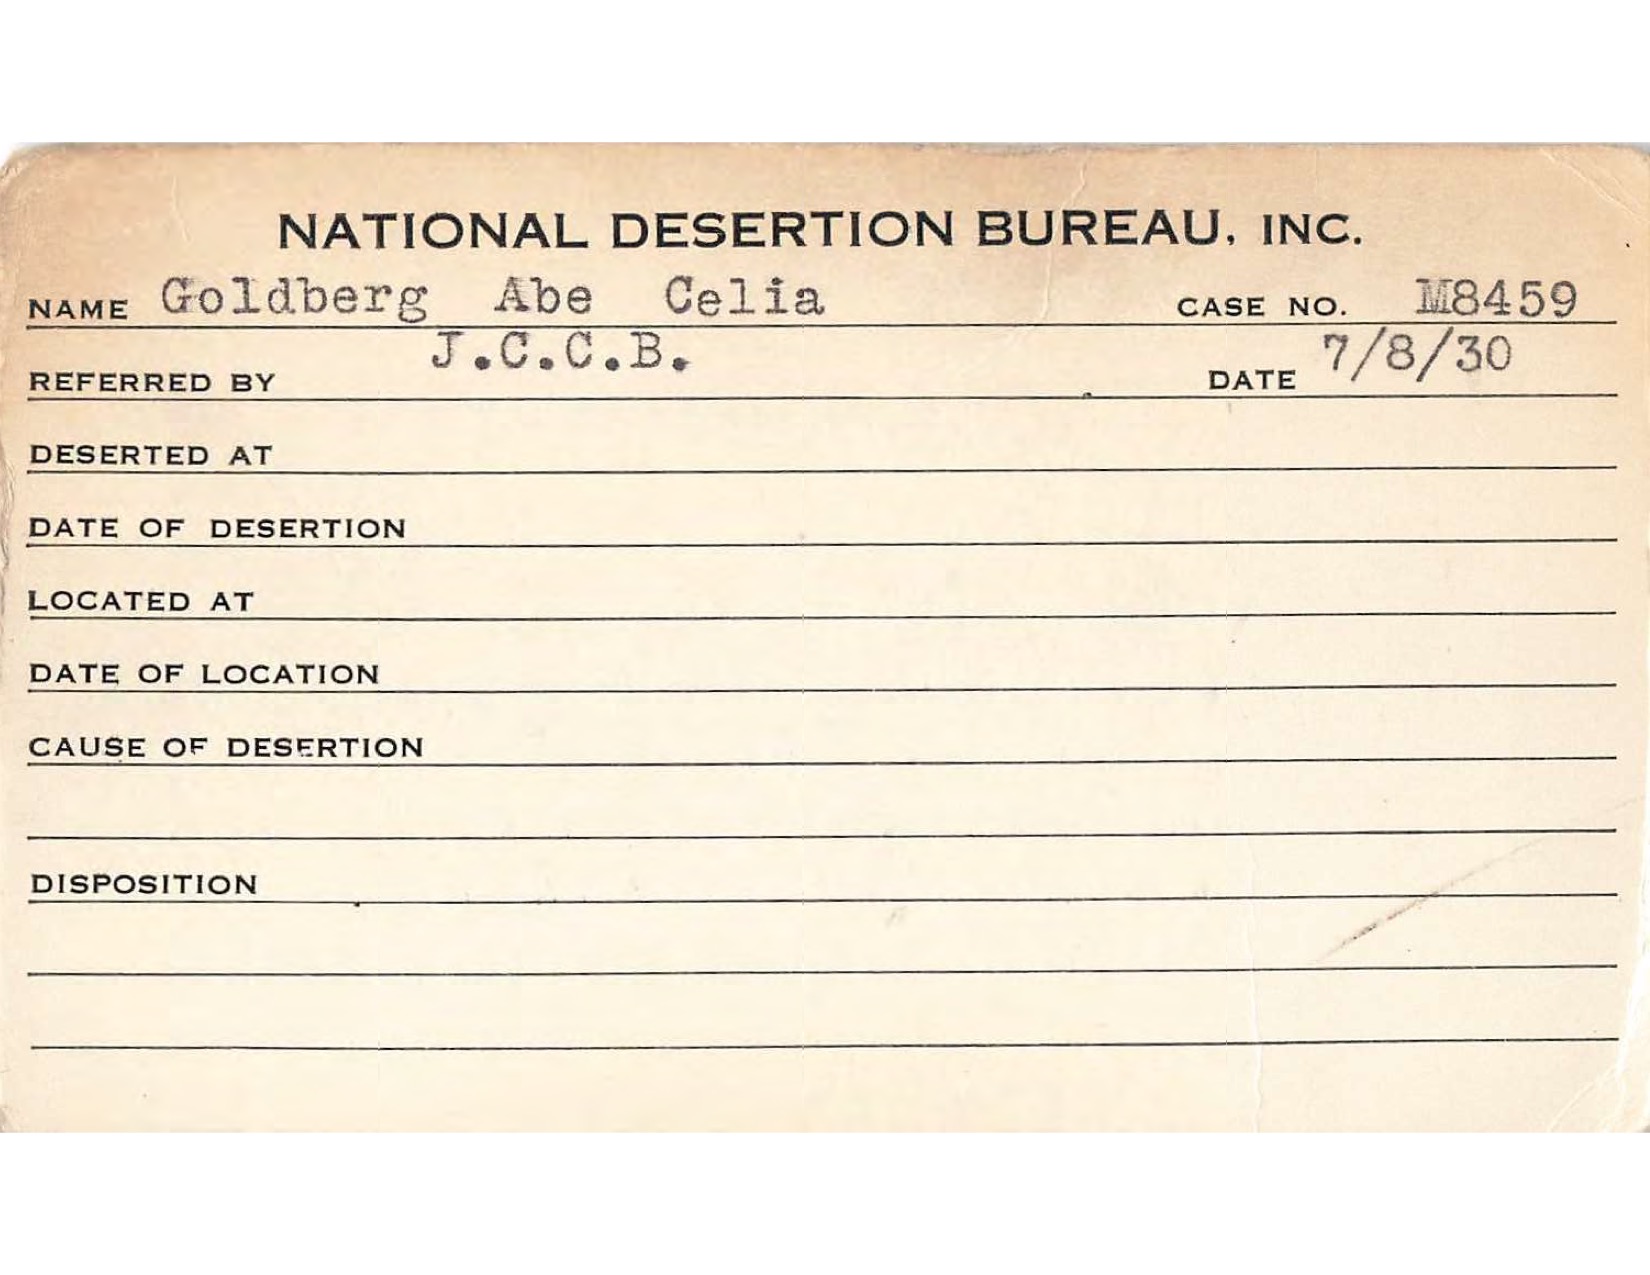 NATIONAL DESERTION BUREAU, INC.
NAME Goldberg Abe Celia CASE NO. M8459
REFERRED BY J.C.C.B. DATE 7/8/30
DESERTED AT
DATE OF DESERTION
LOCATED AT
DATE OF LOCATION
CAUSE OF DESERTION
DISPOSITION